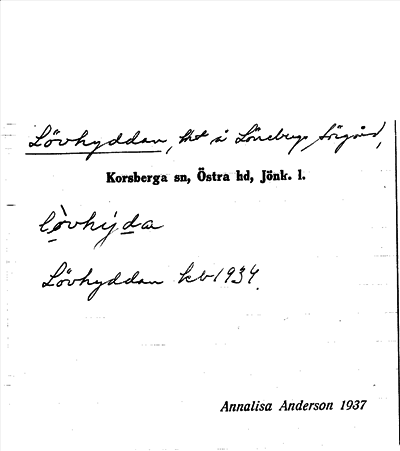 Lövhyddan, tht å Löneberg Sörgård,
Korsberga sn, Östra hd, Jönk. l.
lòvhýda
Lövhyddan kb 1934.
Annalisa Anderson 1937